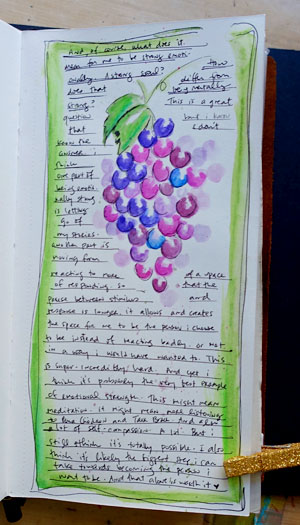 And, of course, what does it
mean for me to be strong emoti-
onally? A strong soul? How
does that differ from
being mentally
strong? This is a great
question but I know
that I don't
know the
answer. I
think
one part of
being emotio-
nally strong
is letting
go of
my stories.
Another part is
moving from
reacting to more of a space
of responding. So that the
pause between stimulus and
response is longer. It allows and creates
the space for me to be the person I choose
to be instead of reacting badly or not
in a way I would have wanted to. This
is super-incredibly hard. And yet I
think it's probably the very best example
of emotional strength. This might mean
meditation. It might mean more listening
to Pema Chodron and Tara Brach. And also
a lot of self-compassion. A lot. But I
still think it's totally possible. I also
think it's likely the biggest step I can
take towards becoming the person I
want to be. And that alone is worth it ♥